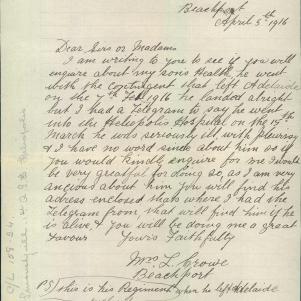 Beachport
April 5th 1916
Dear Sirs or Madams
I am writing to you to see if you will
enquire about my sons Health, he went
with the contingent that left Adelaide
on the 7th Feb 1916 he landed alreght
but I had a Telegram to say he went
into the Heliopolis Hospital on the 15th
March he was seriously ill, with pleurisy
& I have no word since about him so if
you would kindly enquire for me I would
be very greatful for doing so, as I am very
ancious about him you will find his
adress enclosed thats where I had the
Telegram from, that will find him if he
is alive, & you will be doing me a great
favour Yours Faithfully
Mrs L Crowe
Beachport
PS) This is his Regiment when he left Adelaide